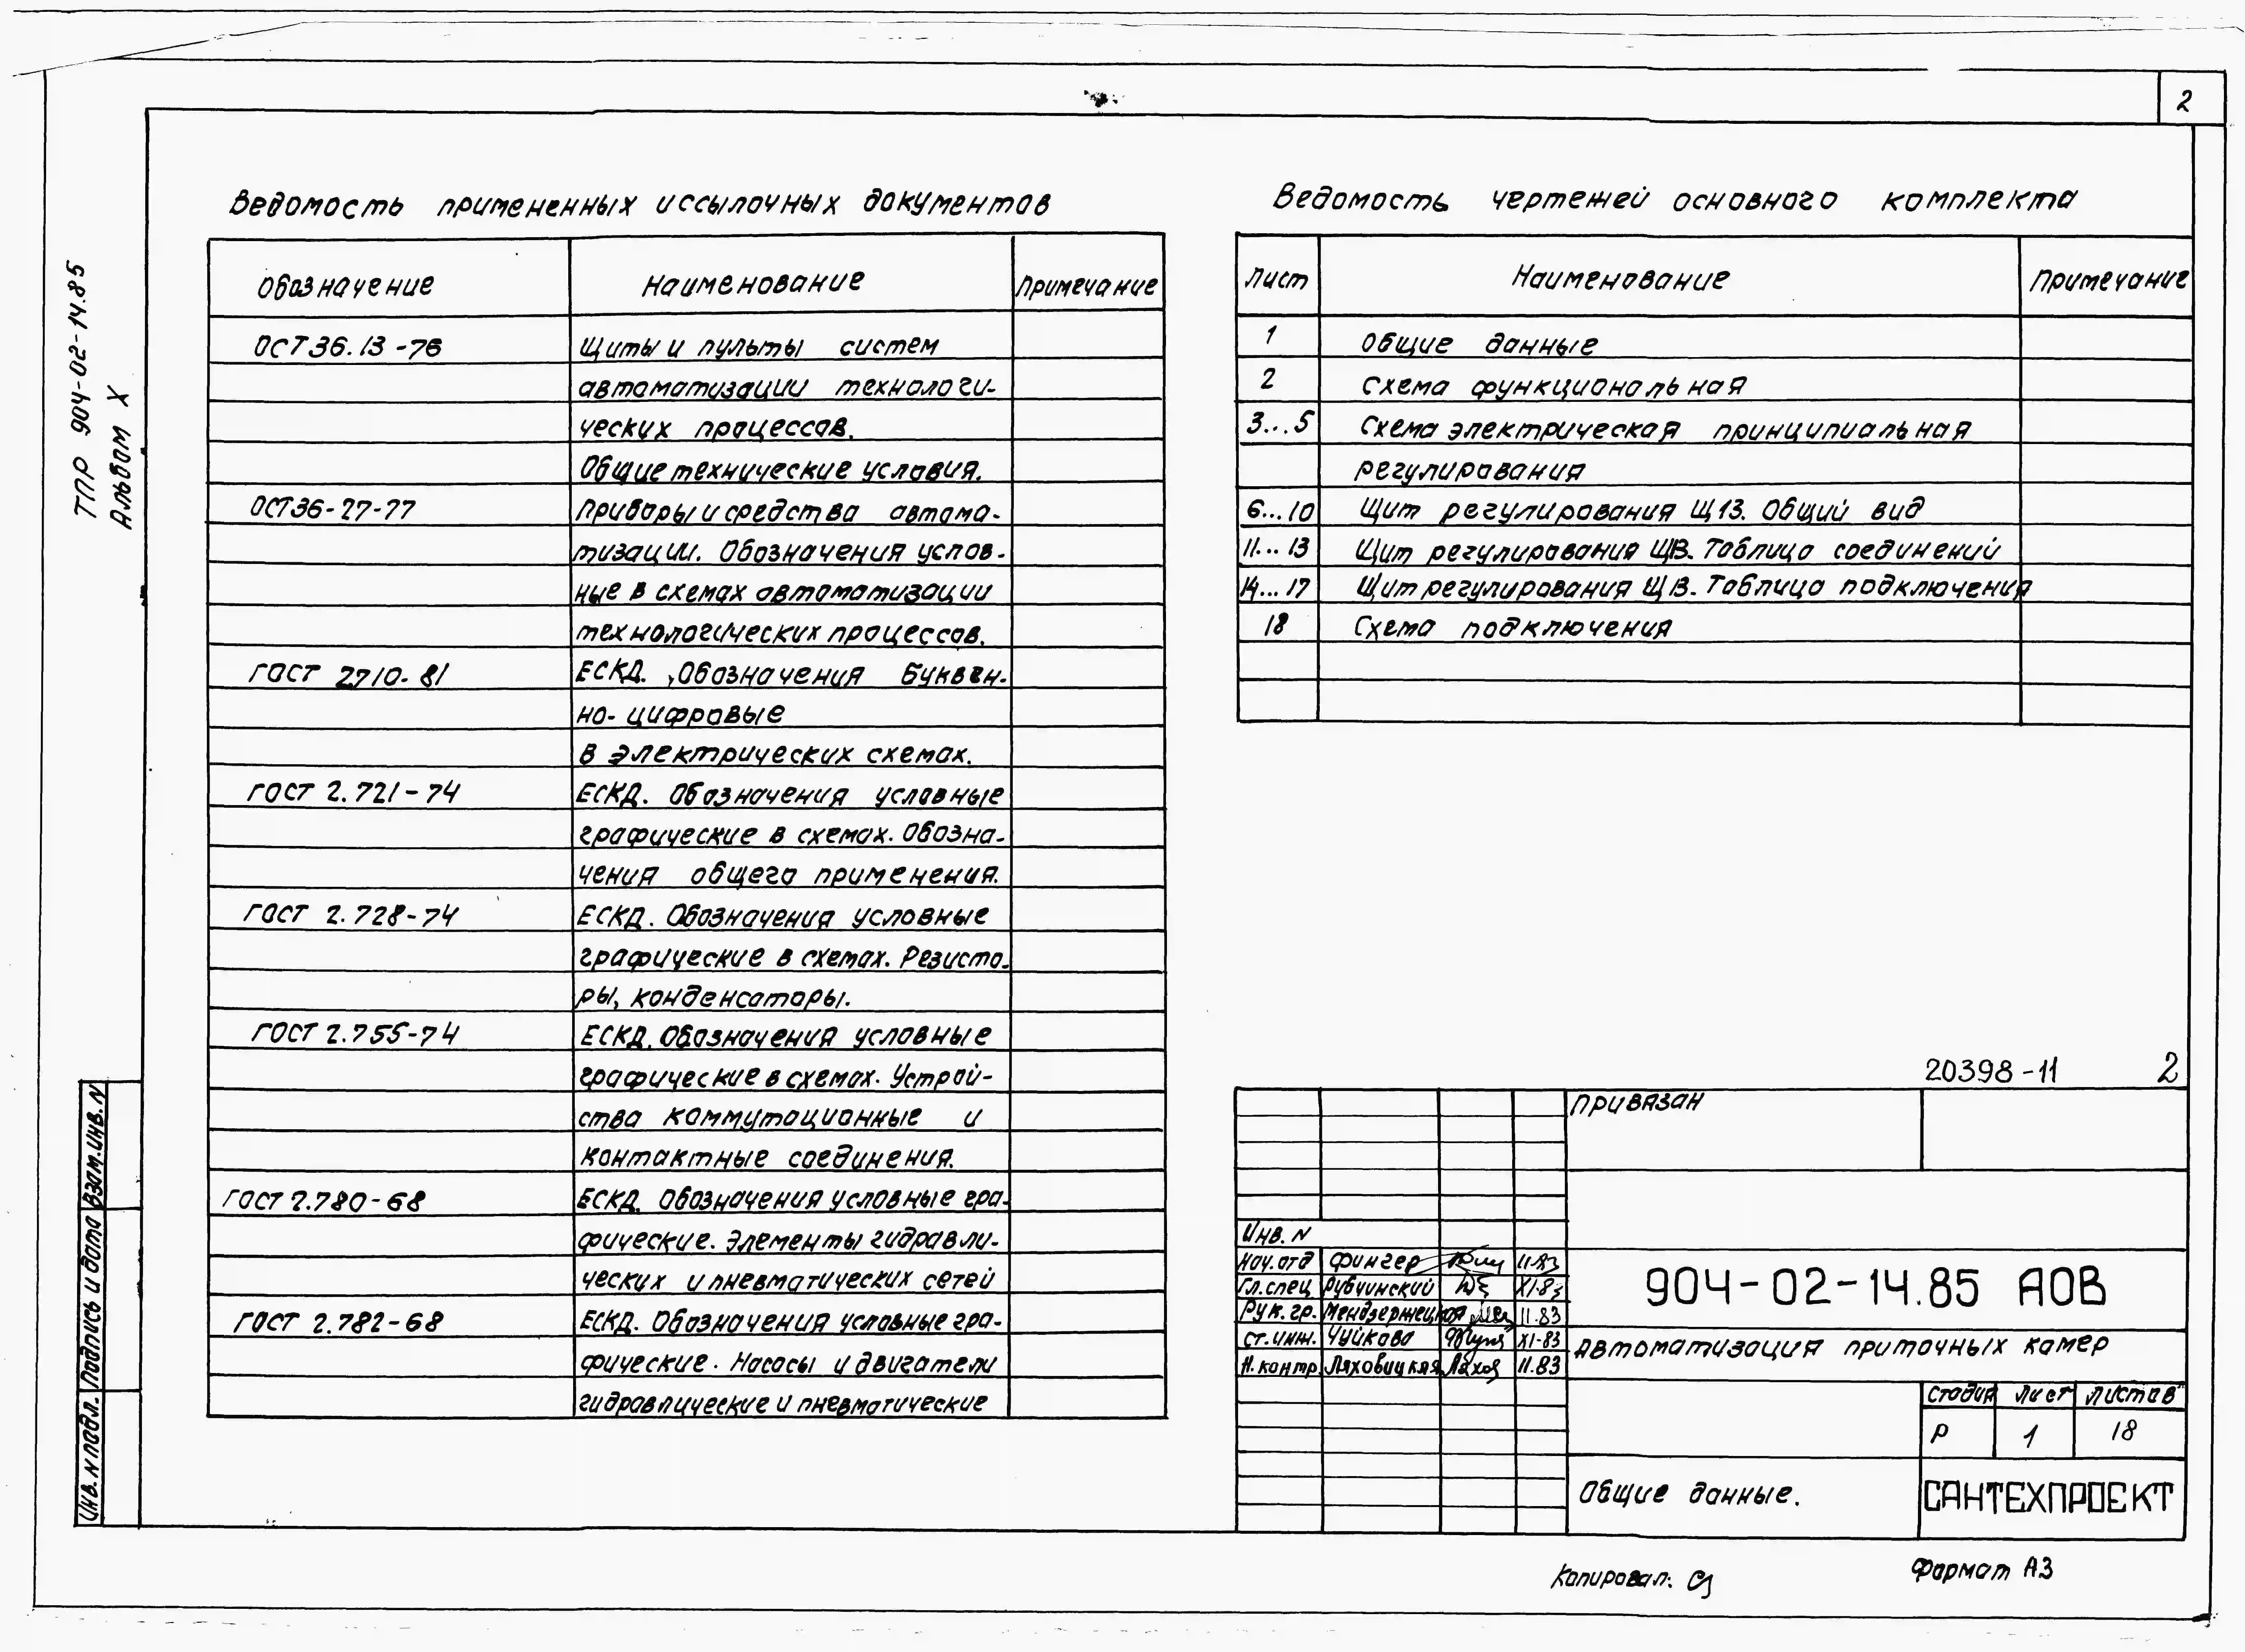 2
ТПР 904-02-14.85
Альбом X
Ведомость примененных и ссылочных документов
Обозначение Наименование Примечание
ОСТ 36.13-76 Щиты и пульты систем
автоматизации технологи-
ческих процессов.
Общие технические условия.
ОСТ36-27-77 Приборы и средства автома-
тизации. Обозначения услов-
ные в схемах автоматизации
технологических процессов.
ГОСТ 2.710-81 ЕСКД. Обозначения буквен-
но-цифровые
в электрических схемах.
ГОСТ 2.721-74 ЕСКД. Обозначения условные
графические в схемах. Обозна-
чения общего применения.
ГОСТ 2.728-74 ЕСКД. Обозначения условные
графические в схемах. Резисто-
ры, конденсаторы.
ГОСТ 2.755-74 ЕСКД. Обозначения условные
графические в схемах. Устрой-
ства коммутационные и
контактные соединения.
ГОСТ 2.780-68 ЕСКД. Обозначения условные гра-
фические. Элементы гидравли-
ческих и пневматических сетей
ГОСТ 2.782-68 ЕСКД. Обозначения условные гра-
фические. Насосы и двигатели
гидравлические и пневматические
Ведомость чертежей основного комплекта
Лист Наименование Примечание
1 Общие данные
2 Схема функциональная
3...5 Схема электрическая принципиальная
регулирования
6...10 Щит регулирования Щ13. Общий вид
11...13 Щит регулирования Щ13. Таблица соединений
14...17 Щит регулирования Щ13. Таблица подключения
18 Схема подключения
20398-11 2
Привязан
Инв. N
Нач. отд Фингер 11.83
Гл. спец Рубчинский XI-83
Рук. гр. 11.83
Ст. инж. Чуйкова XI-83
Н. контр. Ляховицкая Лахов 11.83
904-02-14.85 АОВ
Автоматизация приточных камер
Стадия Лист Листов
Р 1 18
Общие данные.
САНТЕХПРОЕКТ
Инв. N подл. Подпись и дата Взам. инв. N
Копировал:
Формат А3